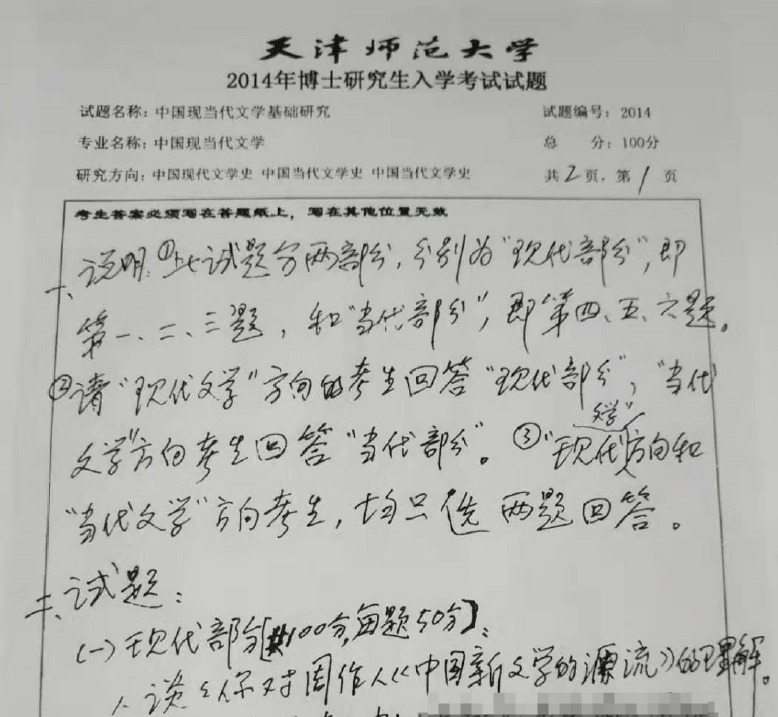 天津师范大学
2014年博士研究生入学考试试题
试题名称：中国现当代文学基础研究 试题编号：2014
专业名称：中国现当代文学 总 分：100分
研究方向：中国现代文学史 中国当代文学史 中国当代文学史 共2页，第1页
考生答案必须写在答题纸上，写在其他位置无效
一、说明：①此试题分两部分，分别为“现代部分”，即
第一、二、三题，和“当代部分”，即第四、五、六题。
②请“现代文学”方向的考生回答“现代部分”，“当代
文学”方向考生回答“当代部分”。③“现代文学”方向和
“当代文学”方向考生，均只选两题回答。
二、试题：
(一)现代部分[共100分，每题50分]：
1、谈谈你对周作人《中国新文学的源流》的理解。